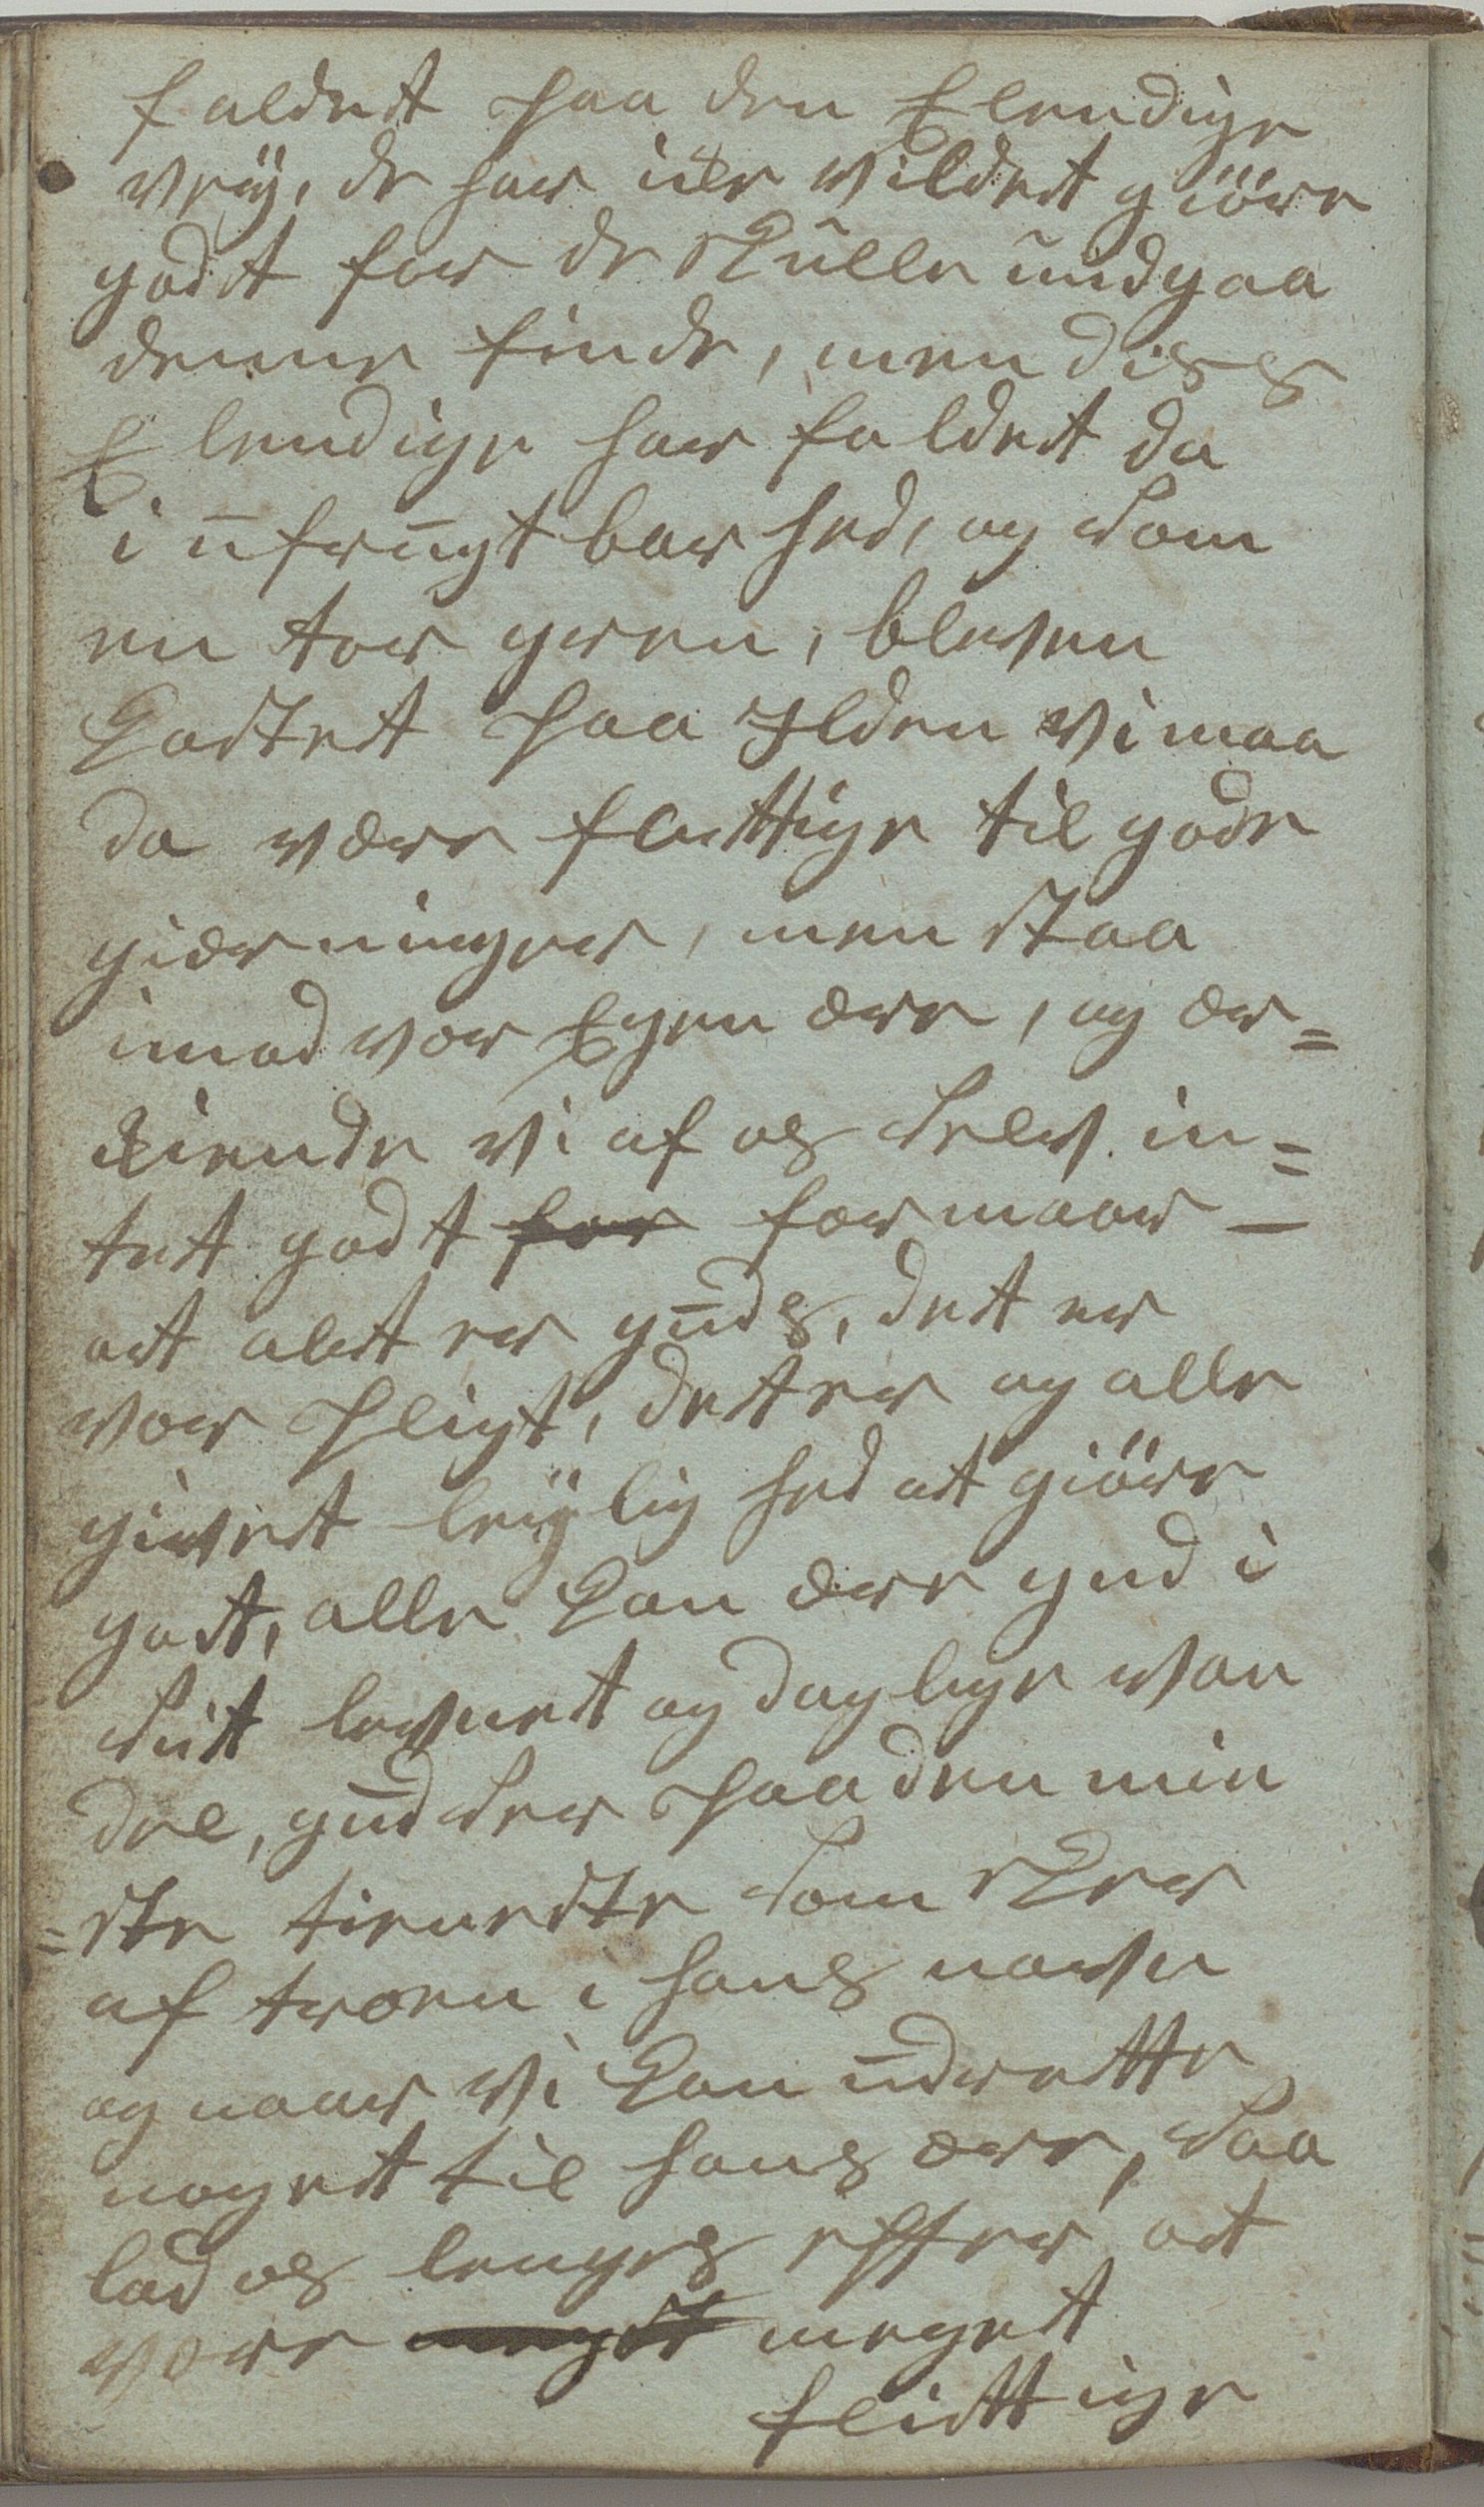 faldet paa den Elendige
veÿ, de har icke vildet giöre
godt for de skulle undgaa
denne sinde, men disse
Elendige har faldet da
i ufrugtbarhed, og som
en tor green, bleven
kastet paa Ilden vi maa
da være flittige til gode
gierninger, men staa
imod vor Egen ære, og er=
kiende vi af os selv in=
tet godt for formaar —
at alt er guds, det er
vor pligt, dette er og alle
givet leÿlighed at giöre
godt, alle kan ære gud i
sit levnet og daglige van
del, gud ser paa den min
=ste tieneste som skeer
af troen i hans navn
og naar vi kan udrette
noget til hans ære, saa
lad os lenges efter at
være meget meget
flittige